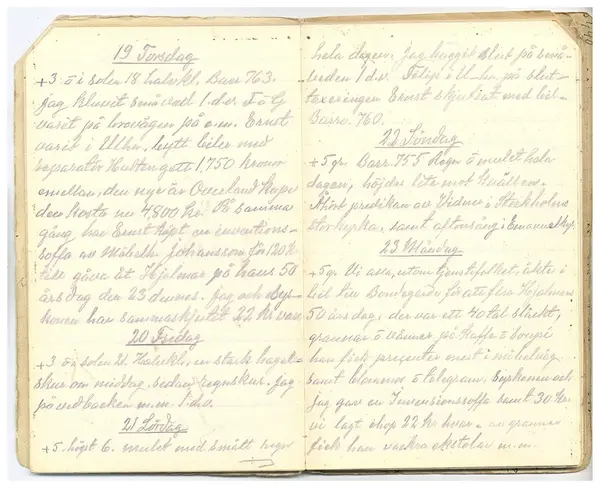 19 Torsdag
+3 ö i solen 18 halvkl. Barr 763.
jag kluvit småved 1.dv. F å G
varit på brovägen på e.m. Ernst
varit i Ulh., bytt biler med
separatör Hultengott 1,750 kronor
emellan, den nye är Overland
den kosta nu 4800 kr. På samma
gång har Ernst köpt en inventions-
soffa av Möbelh. Johansson för 120 k
till gåva åt Hjalmar på hans 50
årsdag den 23 dennes. jag och Sys-
konen har sammanskjutit 22 kr var
20 Fredag
+3 ö solen 21. Halvkl., en stark hagel-
skur om middag, sedan regnskur. jag
på vedbacken m.m. 1.dv.
21 Lördag
+5. högt 6. mulet med smått regn
hela dagen. Jag huggit slut på små-
veden 1 dv. i Ulh. på slut-
taxeringen Ernst skjutsat med bil.
Barr. 760.
22 Söndag
+5 gr. Barr. 755 Regn ö mulet hela
dagen, höjdes lite mot kvällen.
Hört predikan av i Stockholms
storkyrka, samt aftonsång i
23 Måndag
+5 gr. Vi alla, utom tjenstfolket, åkte i
bil till för att fira Hjalmars
50 års dag, der var ett 40 tal släckt,
grannar ö vänner på Kaffe ö Soupé
han fick presenter mest i möbelväg
samt blommor ö telegram. Syskonen och
jag gav en Invensionssoffa samt 30 Kr.
vi lagt ihop 22 kr hvar. av grannar
fick han vackra m.m.